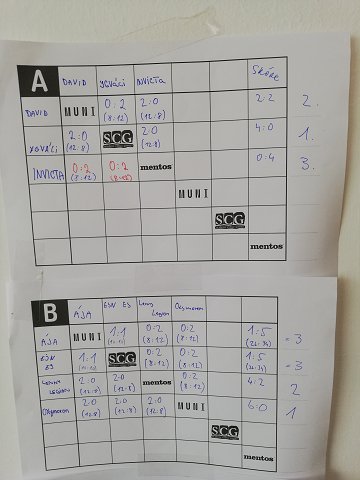 A DAVID XGVÁCI INVICTA SKÓRE
DAVID MUNI 0:2 2:0 2:2 2.
(8:12) (12:8)
XGVÁCI 2:0 SCG 2:0 4:0 1.
(12:8) (12:8)
INVICTA 0:2 0:2 mentos 0:4 3.
(8:12)
MUNI
SCG
mentos
B ÁJA ESN ES Oxymoron
ÁJA MUNI 1:1 0:2 0:2 1:5 =3
(8:12) (8:12) (26:34)
ESN ES 1:1 SCG 0:2 0:2 1:5 =3
(8:12) (8:12) (26:34)
2:0 2:0 mentos 0:2 4:2 2
(12:8) (12:8) (8:12)
Oxymoron 2:0 2:0 2:0 MUNI 6:0 1
(12:8) (12:8) (12:8)
SCG
mentos